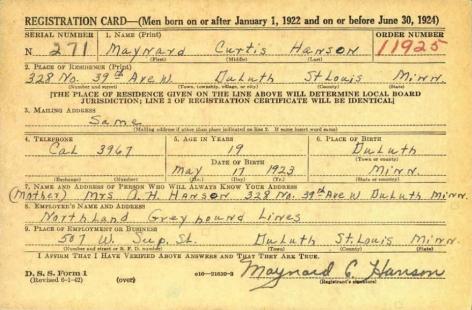 REGISTRATION CARD—(Men born on or after January 1, 1922 and on or before June 30, 1924)
SERIAL NUMBER 1. NAME (Print) ORDER NUMBER
N 271 Maynard Curtis Hanson 11925
(First) (Middle) (Last)
2. PLACE OF RESIDENCE (Print)
328 No. 39th Ave W. Duluth St Louis Minn.
(Number and street) (Town, township, village, or city) (County) (State)
[THE PLACE OF RESIDENCE GIVEN ON THE LINE ABOVE WILL DETERMINE LOCAL BOARD
JURISDICTION; LINE 2 OF REGISTRATION CERTIFICATE WILL BE IDENTICAL]
3. MAILING ADDRESS
Same
(Mailing address if other than place indicated on line 2. If same insert word same)
4. TELEPHONE 5. AGE IN YEARS 6. PLACE OF BIRTH
Cal 3967 19 Duluth
DATE OF BIRTH (Town or county)
May 17 1923 Minn.
(Exchange) (Number) (Mo.) (Day) (Yr.) (State or country)
7. NAME AND ADDRESS OF PERSON WHO WILL ALWAYS KNOW YOUR ADDRESS
(Mother) Mrs A. H. Hanson 328 No. 39th Ave W Duluth Minn.
8. EMPLOYER'S NAME AND ADDRESS
Northland Greyhound Lines
9. PLACE OF EMPLOYMENT OR BUSINESS
507 W. Sup. St. Duluth St. Louis Minn.
(Number and street or R. F. D. number) (Town) (County) (State)
I AFFIRM THAT I HAVE VERIFIED ABOVE ANSWERS AND THAT THEY ARE TRUE.
D. S. S. Form 1
(Revised 6-1-42) (over) 16—21630-2 Maynard C. Hanson
(Registrant's signature)